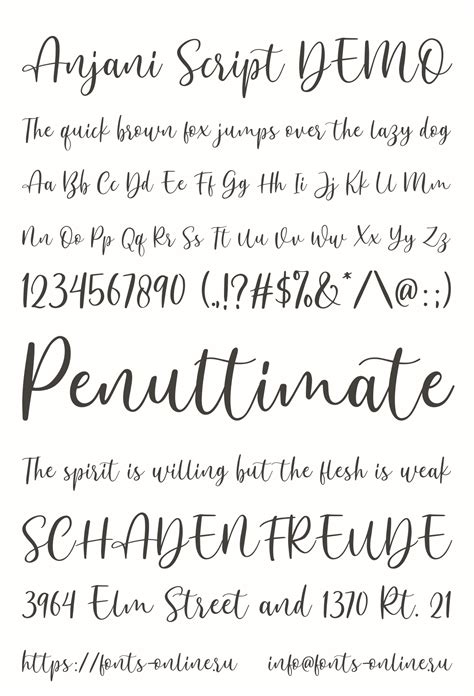 Anjani Script DEMO
The quick brown fox jumps over the lazy dog
Aa Bb Cc Dd Ee Ff Gg Hh Ii Jj Kk Ll Mm
Nn Oo Pp Qq Rr Ss Tt Uu Vv Ww Xx Yy Zz
1234567890 (.,!?#$%&*/\@:;)
Penultimate
The spirit is willing but the flesh is weak
SCHADENFREUDE
3964 Elm Street and 1370 Rt. 21
https://fonts-online.ru info@fonts-online.ru